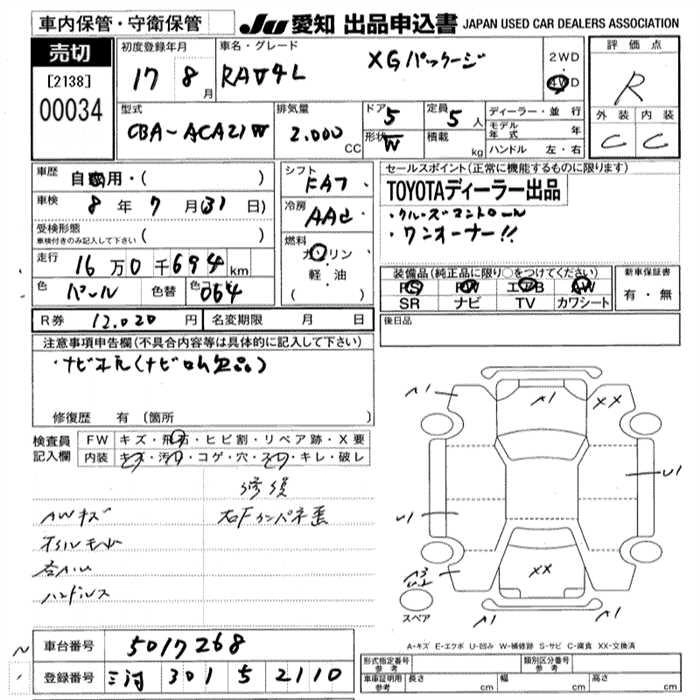 車内保管・守衛保管
JU 愛知 出品申込書 JAPAN USED CAR DEALERS ASSOCIATION
売切
[2138]
00034
初度登録年月
17 8月
車名・グレード
RAV4L XGパッケージ
2WD
4WD
評価点
R
外装 内装
C C
型式
CBA-ACA21W
排気量
2.000 CC
ドア 5
形状 W
定員 5人
積載 kg
ディーラー・並行
モデル年式 年
ハンドル 左・右
車歴
自家用・( )
車検
8年 7月(31日)
受検形態
車検付きのみ記入して下さい ( )
走行
16万0千694km
色 パール 色替 色 064
シフト
FAT
冷房
AAC
燃料
ガソリン
軽・油
( )
セールスポイント(正常に機能するものに限ります)
TOYOTAディーラー出品
・クルーズコントロール
・ワンオーナー!!
装備品(純正品に限り○をつけてください)
PS PW エアB AW
SR ナビ TV カワシート
新車保証書
有・無
R券 12,020円
名変期限 月 日
後日品
注意事項申告欄(不具合内容等は具体的に記入して下さい)
・ナビ不良(ナビロム欠品)
修復歴 有(箇所 )
検査員記入欄
FW キズ・飛石・ヒビ割・リペア跡・X要
内装 キズ・汚れ・コゲ・穴・スレ・キレ・破レ
修復
AWキズ
右Fインパネ歪
ハンドルス
A1
A1
XX
U1
U1
A3
XX
A1
A1
スペア
A-キズ E-エクボ U-凹み W-補修跡 S-サビ C-腐食 XX-交換済
車台番号 5017268
登録番号 三河 301 5 2110
形式指定番号 参考
類別区分番号 参考
車庫証明用 参考 長さ cm 幅 cm 高さ cm